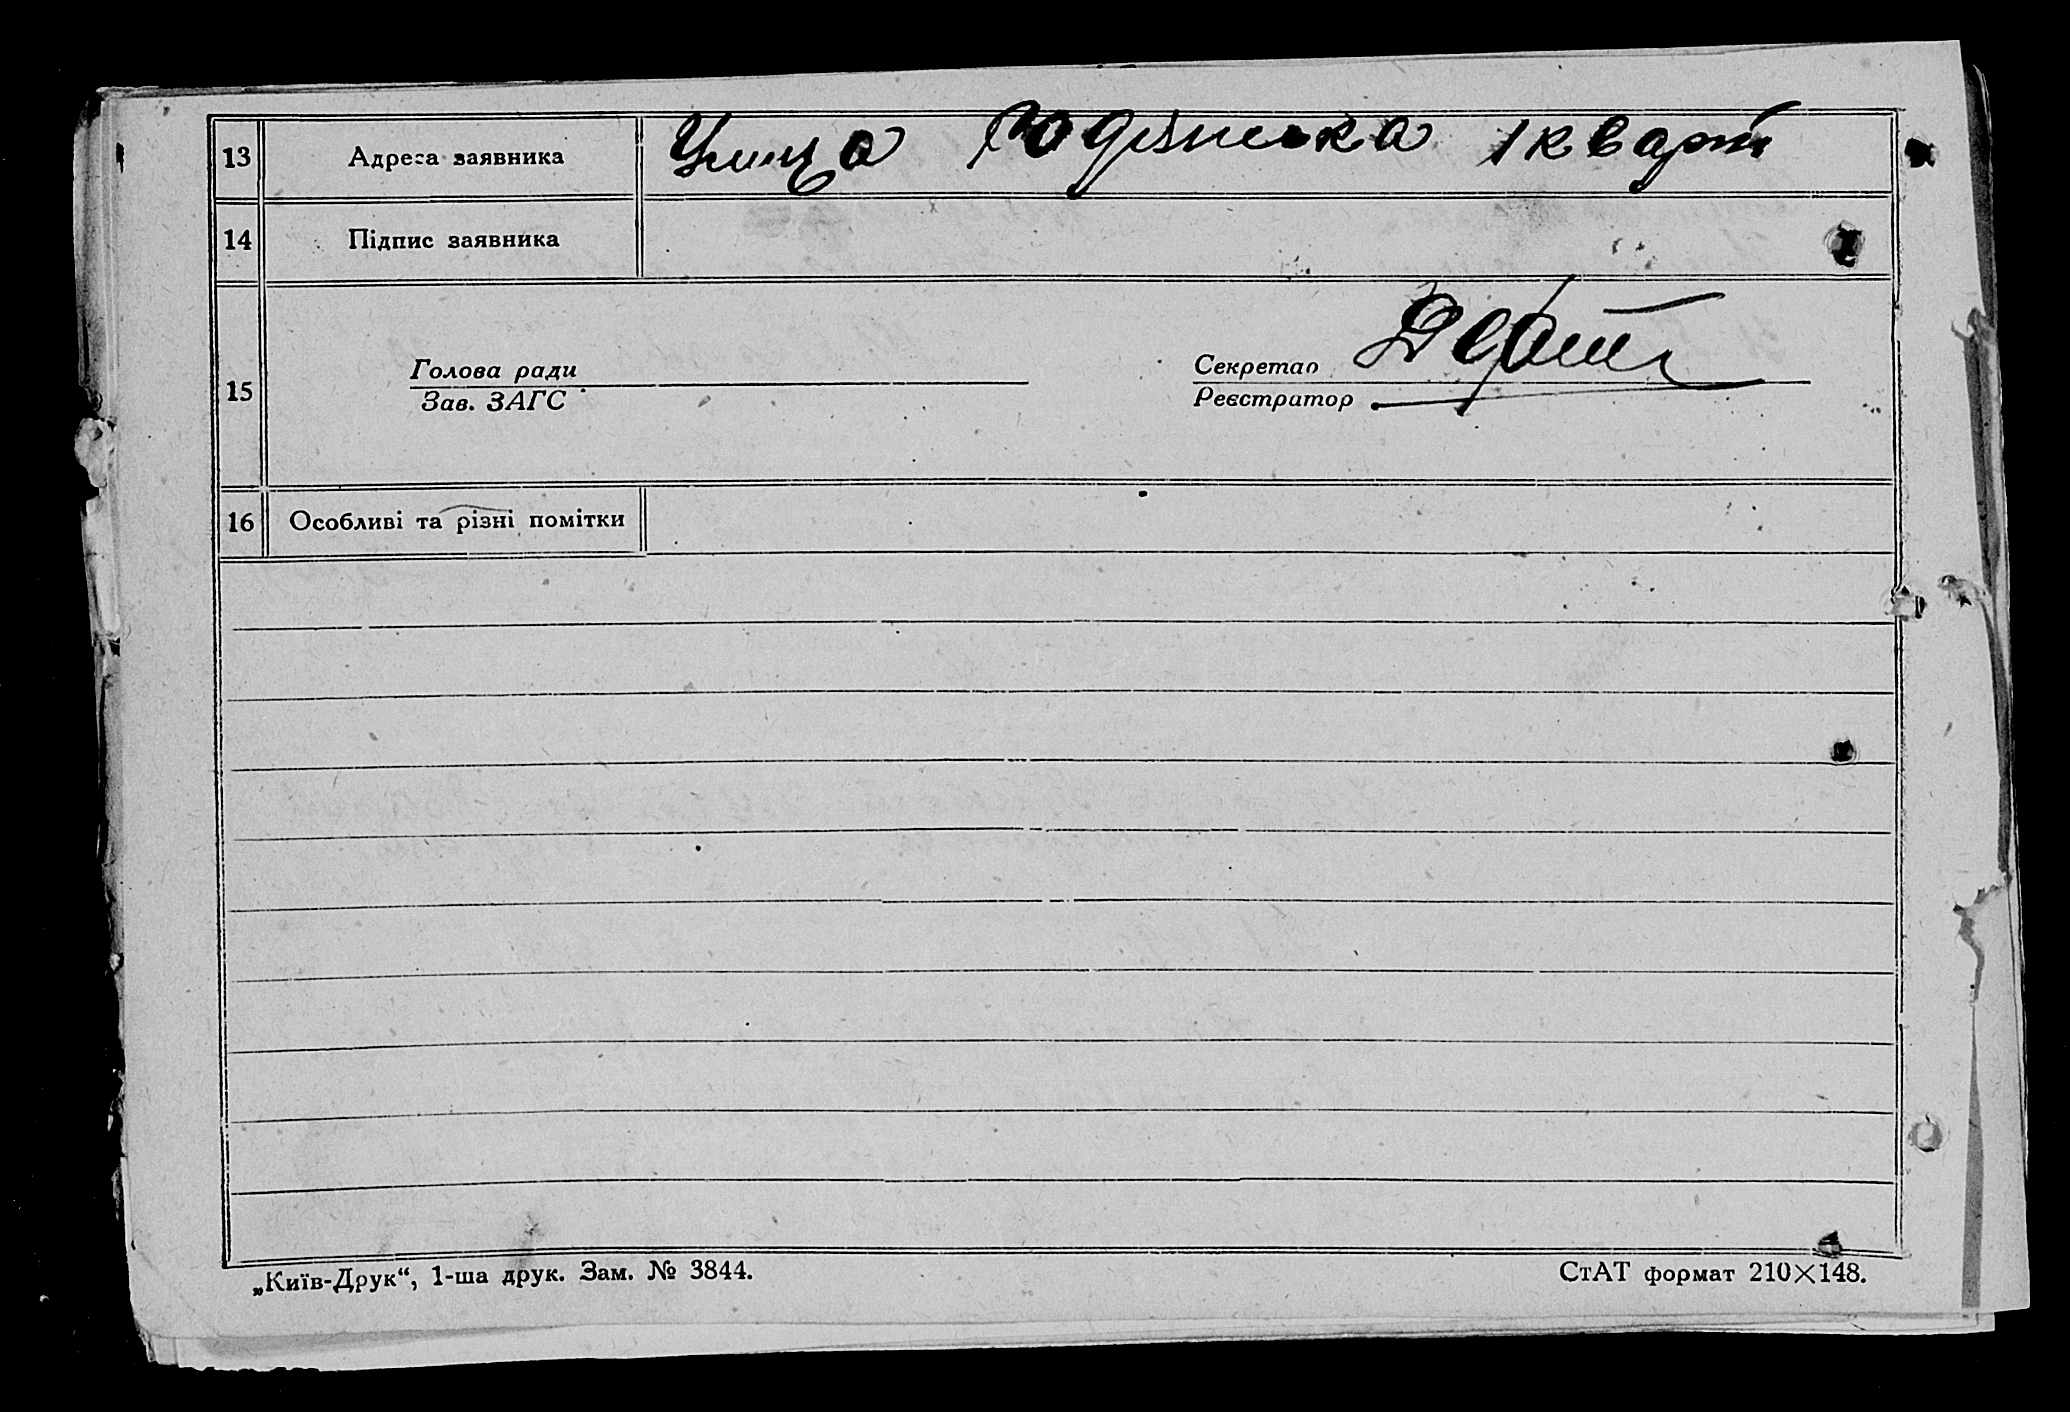 13 Адреса заявника Улица 1 кварт
14 Підпис заявника
15 Голова ради Секретар
Зав. ЗАГС Реєстратор
16 Особливі та різні помітки
„Київ-Друк“, 1-ша друк. Зам. № 3844. СтАТ формат 210×148.